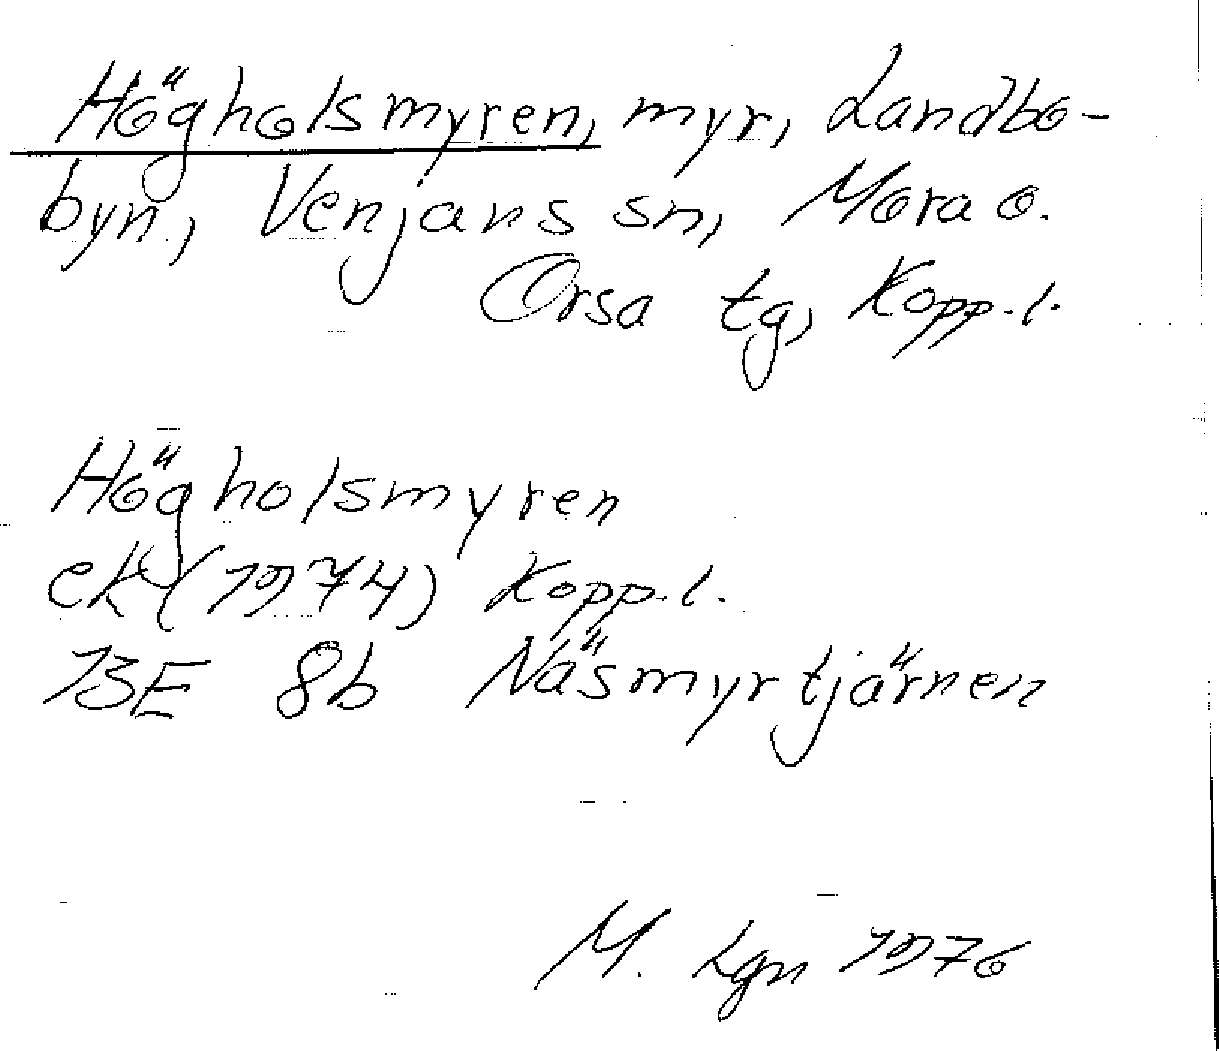 Högholsmyren, myr, Landbo-
byn, Venjans sn, Mora o.
Orsa tg, Kopp. l.
Högholsmyren
ek (1974) Kopp. l.
13E 8b Näsmyrtjärnen
M. Lgn 1976